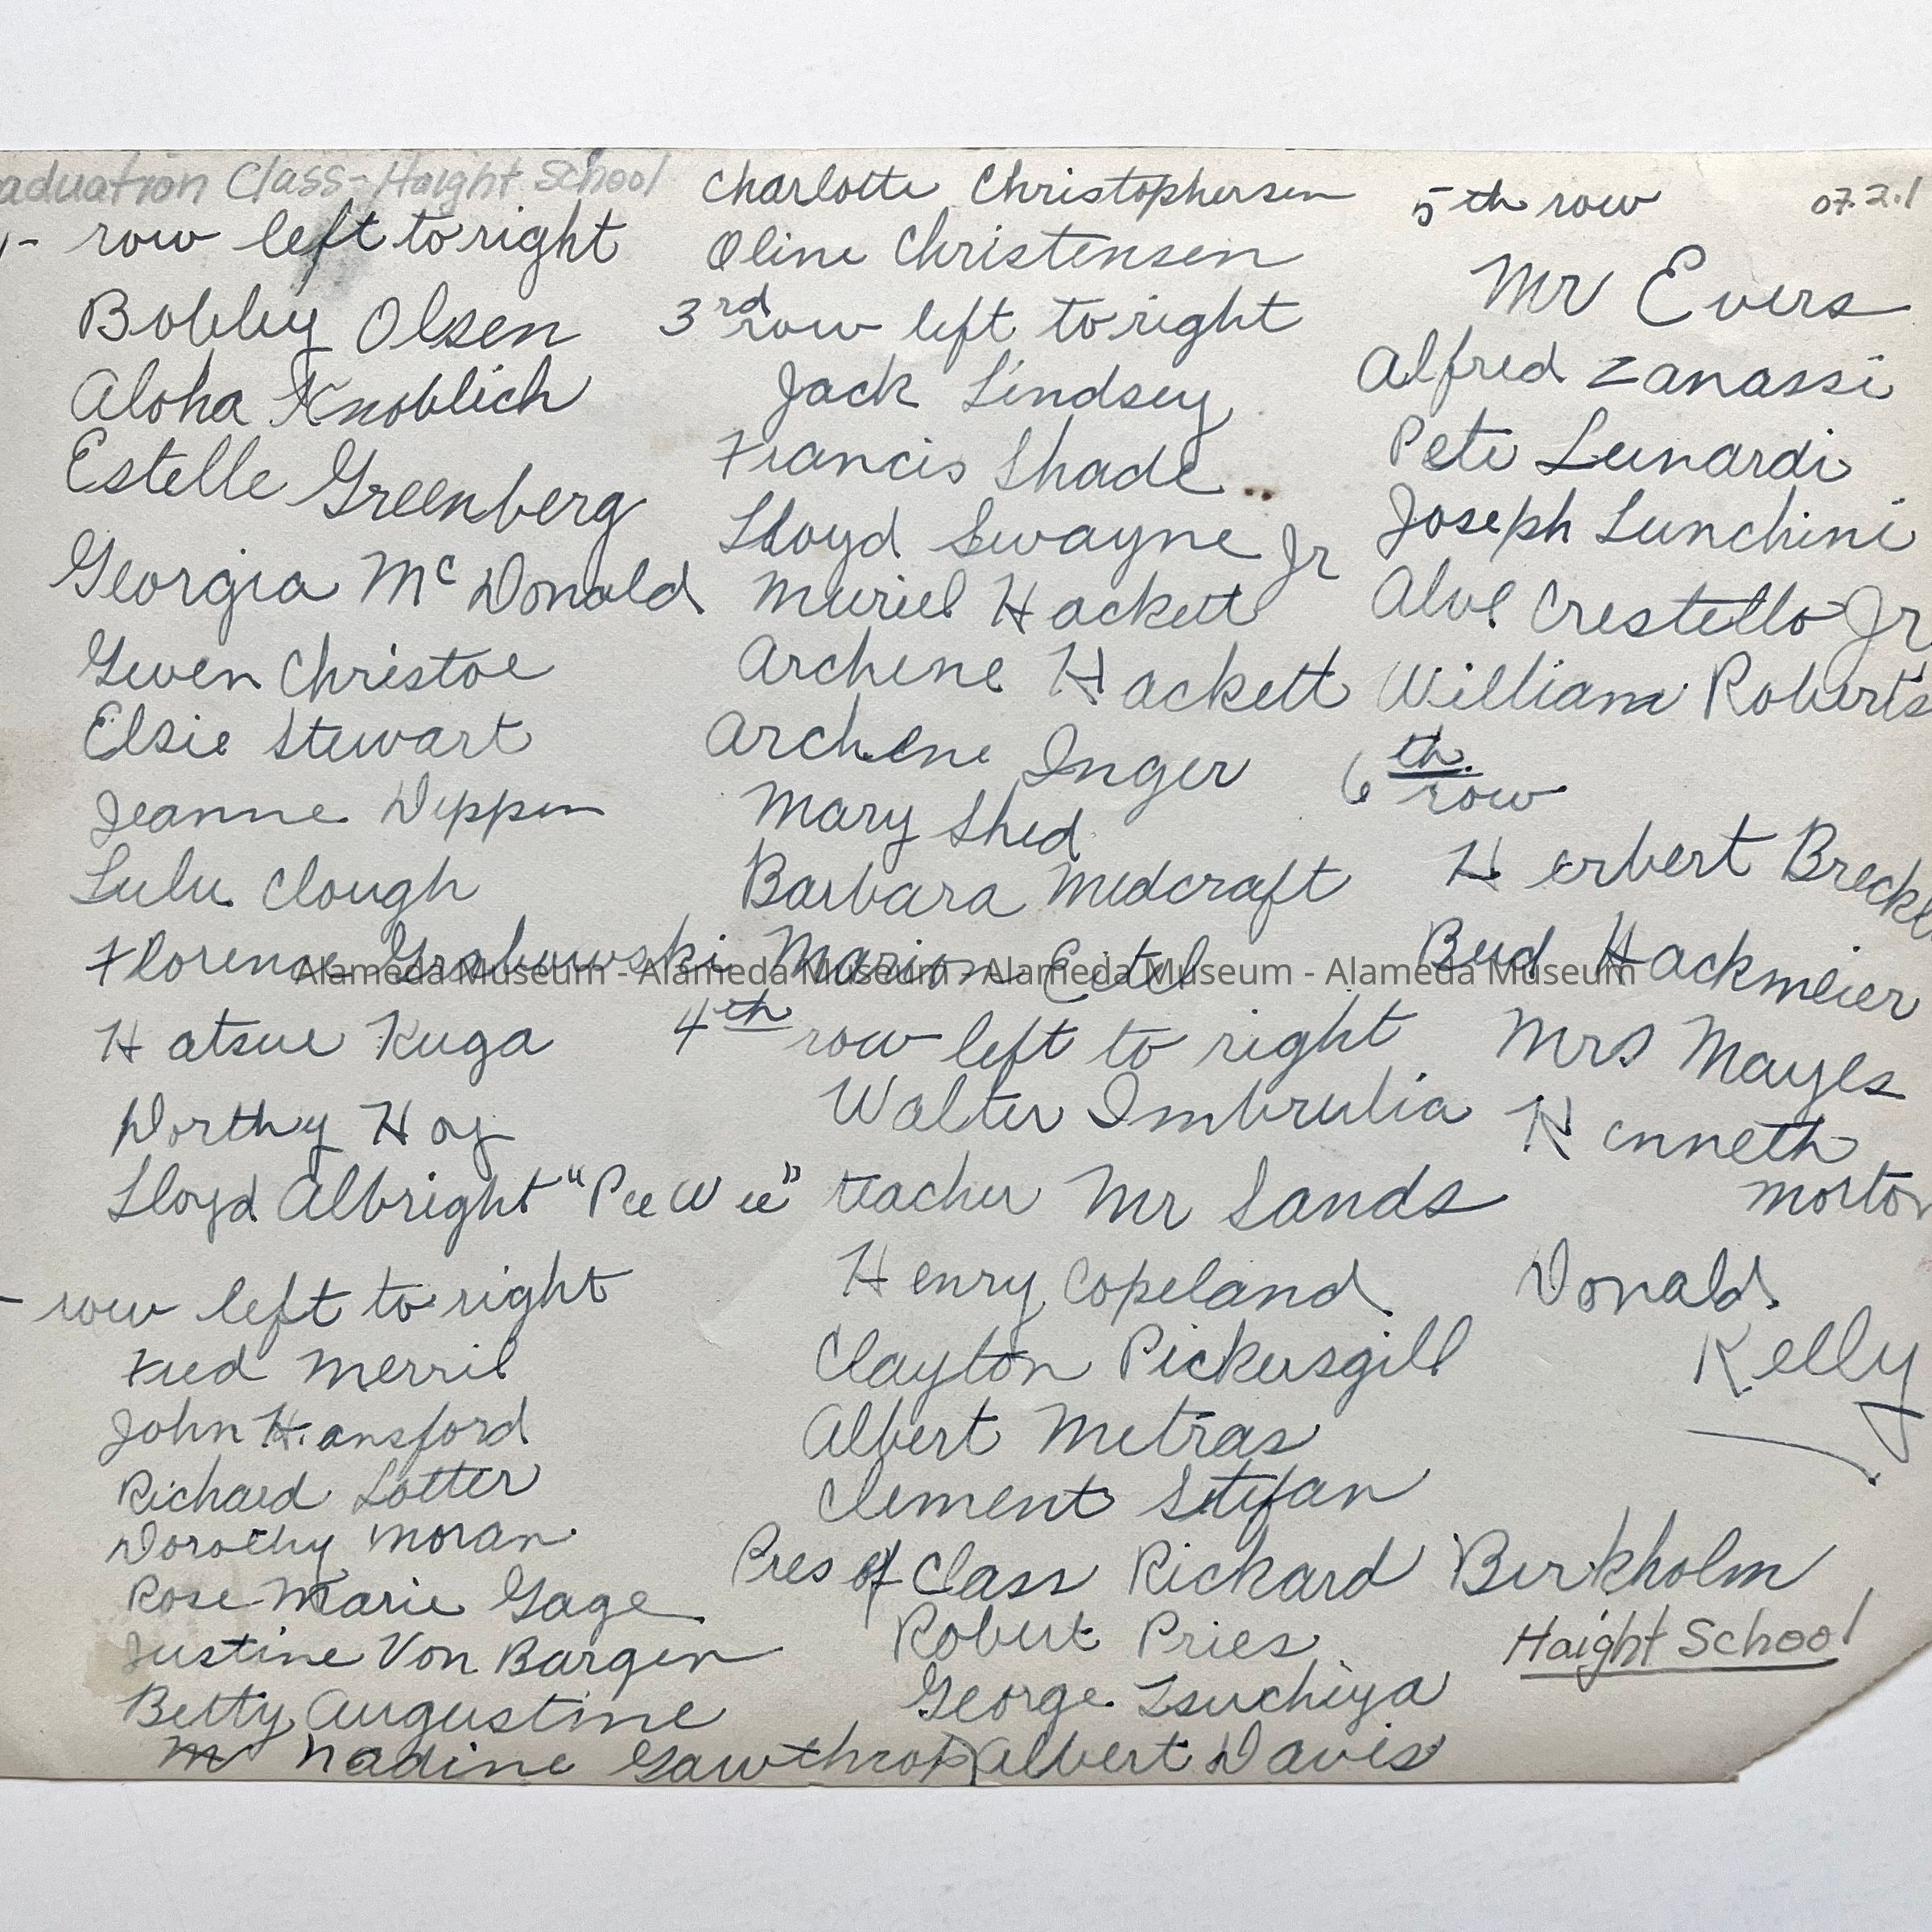 aduation Class-Haight School
row left to right
Bobby Olsen
Aloha Knoblich
Estelle Greenberg
Georgia Mc Donald
Gwen Christoe
Elsie Stewart
Jeanne Deppen
Lulu Clough
Florence Grabowski
Hatsue Kuga
Dorthy Hoy
Lloyd Albright "Pee Wee"
row left to right
Fred Merril
John Hansford
Richard Lotter
Dorothy Moran
Rose Marie Gage
Justine Von Bargen
Betty Augustine
Nadine Gawthrop
Charlotte Christophersen
Oline Christensen
3rd row left to right
Jack Lindsey
Francis Shade
Lloyd Swayne Jr
Muriel Hackett
Archene Hackett
Archene Inger
Mary Shed
Barbara Medcraft
Marion Eitel
4th row left to right
Walter Imbrulia
teacher Mr Sands
Henry Copeland
Clayton Pickersgill
Albert Metras
Clement Stefan
Pres of Class Rickard Berkholm
Robert Pries
George Tsuchiya
Albert Davis
5th row
07.2.1
Mr Evers
Alfred Zanassi
Pete Lunardi
Joseph Lunchini
Crestello Jr
William Roberts
6th row
Herbert Breckl
Bud Hackmeier
Mrs Mayes
Kenneth
Morton
Donald
Kelly
Haight School
Alameda Museum - Alameda Museum - Alameda Museum - Alameda Museum